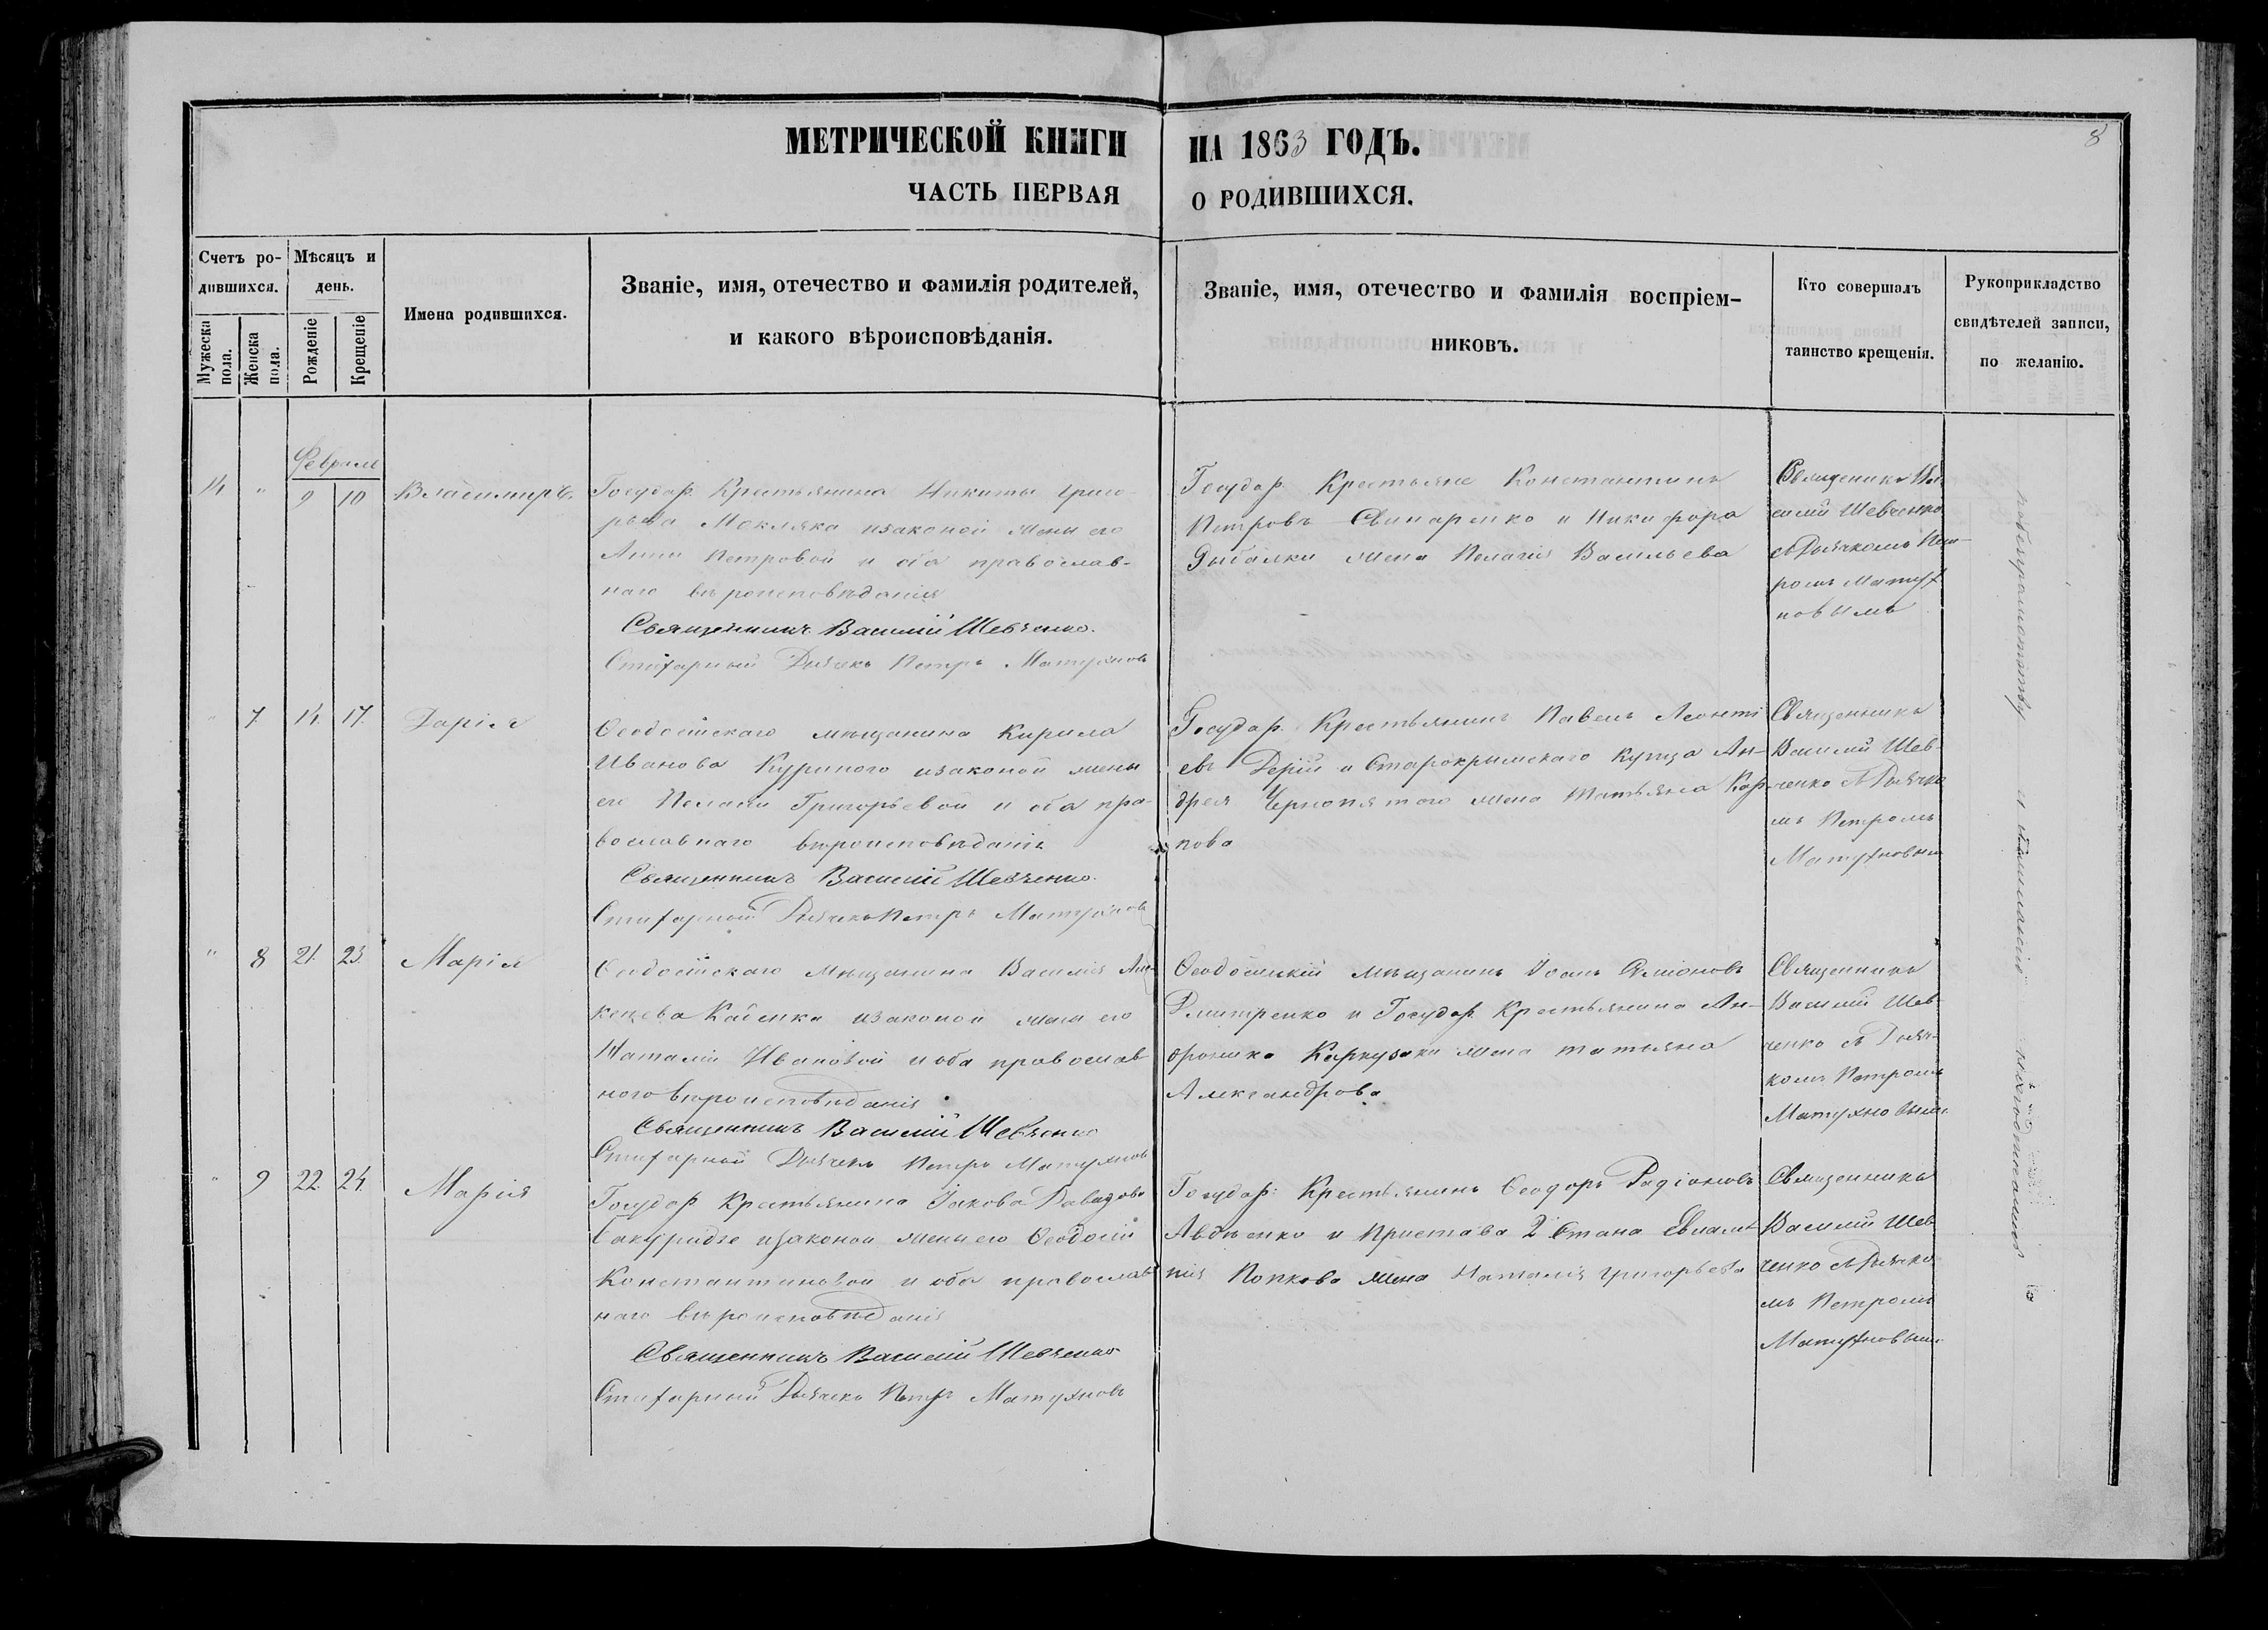 МЕТРИЧЕСКОЙ КНИГИ НА 1863 ГОДЪ.
8
ЧАСТЬ ПЕРВАЯ О РОДИВШИХСЯ.
Счетъ ро-
дившихся.
Мужеска
пола.
Женска
пола.
Мѣсяцъ и
день.
Рожденіе
Крещеніе
Имена родившихся.
Званіе, имя, отечество и фамилія родителей,
и какого вѣроисповѣданія.
Званіе, имя, отечество и фамилія воспріем-
никовъ.
Кто совершалъ
таинство крещенія.
Рукоприкладство
свидѣтелей записи,
по желанію.
Февраль
14 " 9 10 Владимиръ.
Государ. Крестьянина Никиты Григо-
рьева Мокляка изаконой жены его
Анны Петровой и оба православ-
наго вѣроисповѣданія
Священникъ Василій Шевченко.
Стихарный Дьячекъ Петръ Матухновъ
Государ. Крестьяне Константинъ
Петровъ Свинаренко и Никифора
Рыбалки жена Пелагія Васильева
Священикъ Ва
силий Шевченко
съ Дьячкомъ Пет-
ромъ Матух
новымъ
" 7. 14. 17. Дарія
Ѳеодосійскаго мѣщанина Кирила
Иванова Куриного изаконой жены
его Пелагіи Григорьевой и оба пра-
вославнаго вѣроисповѣданія
Священникъ Василій Шевченко.
Стихарный Дьячекъ Петръ Матухновъ
Государ. Крестьянинъ Павелъ Леонті
евъ Дерій и Старокрымскаго купца Ан-
дрея Чернопятого жена Татьяна Кар-
пова
Священникъ
Василий Шев
ченко съ Дьячко
мъ Петромъ
Матухновым
" 8 21. 23. Марія
Ѳеодосійскаго Мѣщанина Василія
изаконой жены его
Наталіи Ивановой и оба православ
ного вѣроисповѣданія
Священникъ Василій Шевченко
Стихарный Дьячекъ Петръ Матухновъ
Ѳеодосійскій мѣщанинъ Іоанъ
Дмитренко и Государ. Крестьянина Ан-
дроника жена татьяна
Александрова
Священникъ
Василий Шев
ченко съ Дьяч-
комъ Петромъ
Матухновым
" 9 22. 24. Марія
Государ. Крестьянина Іякова Давидова
изаконой жены его Ѳеодосіи
Константиновой и оба православ
наго вѣроисповѣданія
Священникъ Василий Шевченко
Стихарный Дьячекъ Петръ Матухновъ
Государ: Крестьянинъ Ѳеодоръ Радіоновъ
Авдѣенко и Пристава 2 Стана Евламъ
пія Попкова жена Наталія Григорьева
Священникъ
Василий Шев
ченко съ Дьячко
мъ Петромъ
Матухновым